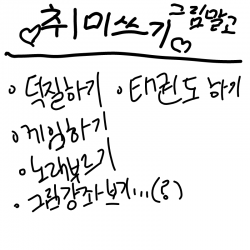 ♡취미쓰기♡ 그림말고
• 덕질하기 • 태권도 하기
• 게임하기
• 노래부르기
• 그림강좌보기...(응)